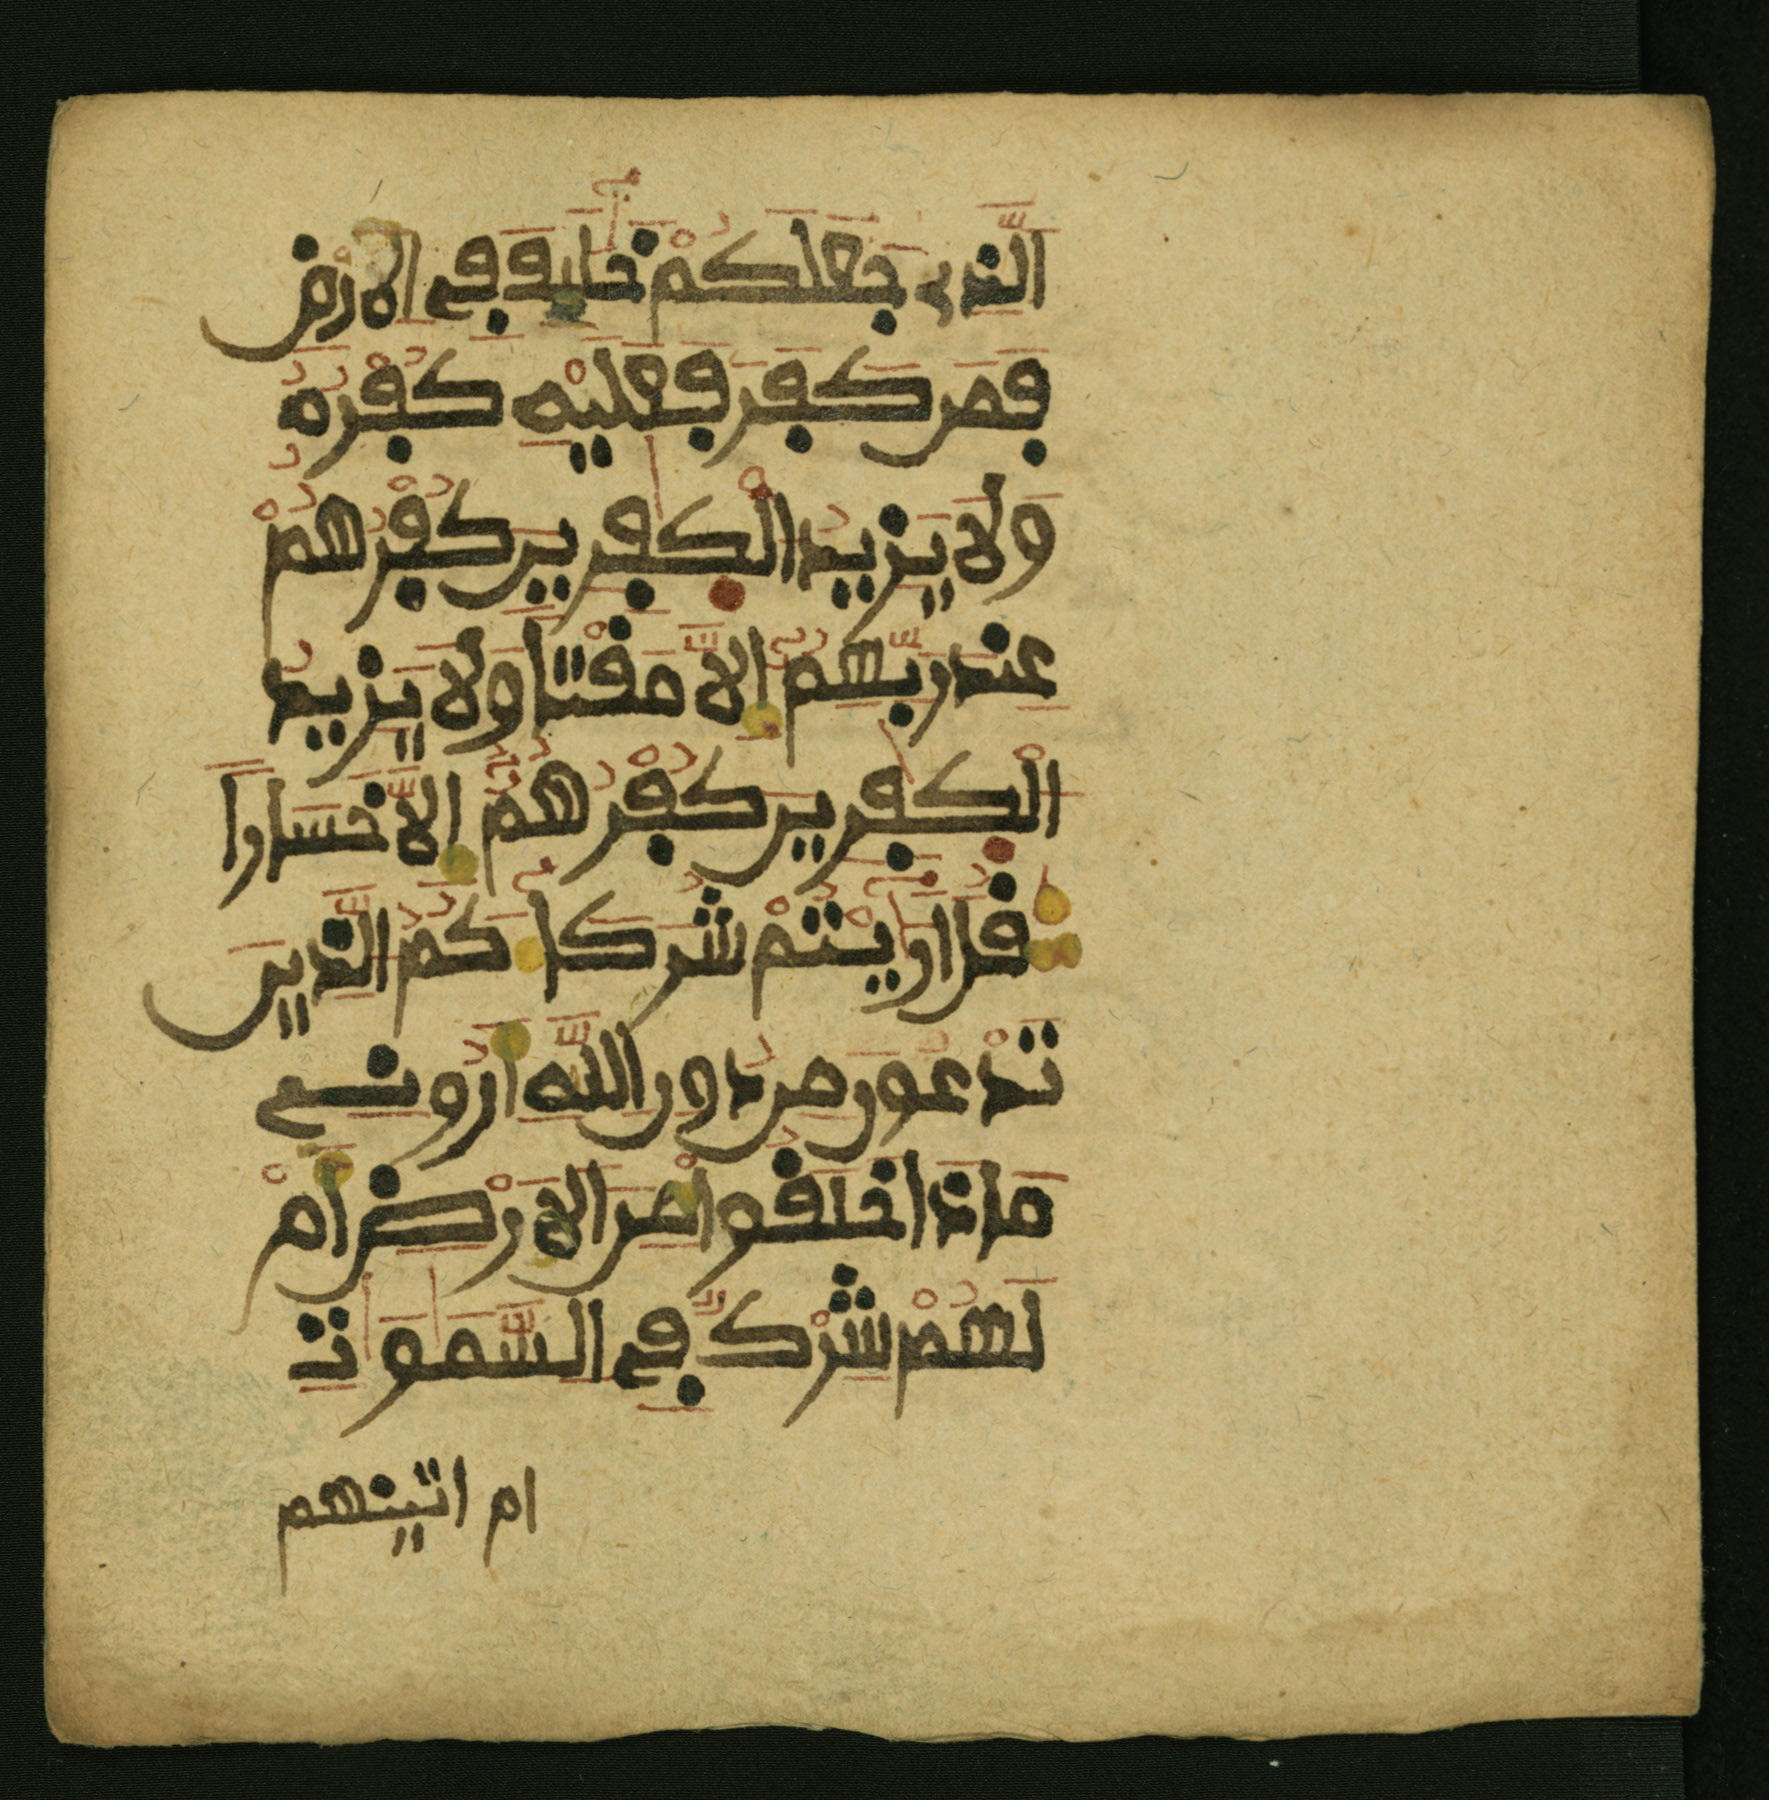 الَّذِے جَعَلَكُمْ خَلَٰٓئِفَ فِے الَارْضِ
فَمَن كَفَرَ فَعَلَيْهِ كُفْرُهُ
وَلَا يَزِيدُ الْكَٰفِرِينَ كُفْرُهُمْ
عِندَ رَبِّهِمُۥٓ إِلَّا مَقْتاً وَلَا يَزِيدُ
الْكَٰفِرِينَ كُفْرُهُمُۥٓ إِلَّا خَسَاراً
قُلَ اَرَٰٓيْتُمْ شُرَكَآءَكُمُ الَّذِينَ
تَدْعُونَ مِن دُونِ اللَّهِ أَرُونِے
مَاذَا خَلَقُواْ مِنَ الَارْضِ أَمْ
لَهُمْ شِرْكٌ فِے السَّمَٰوَٰتِ
ام اتينهم